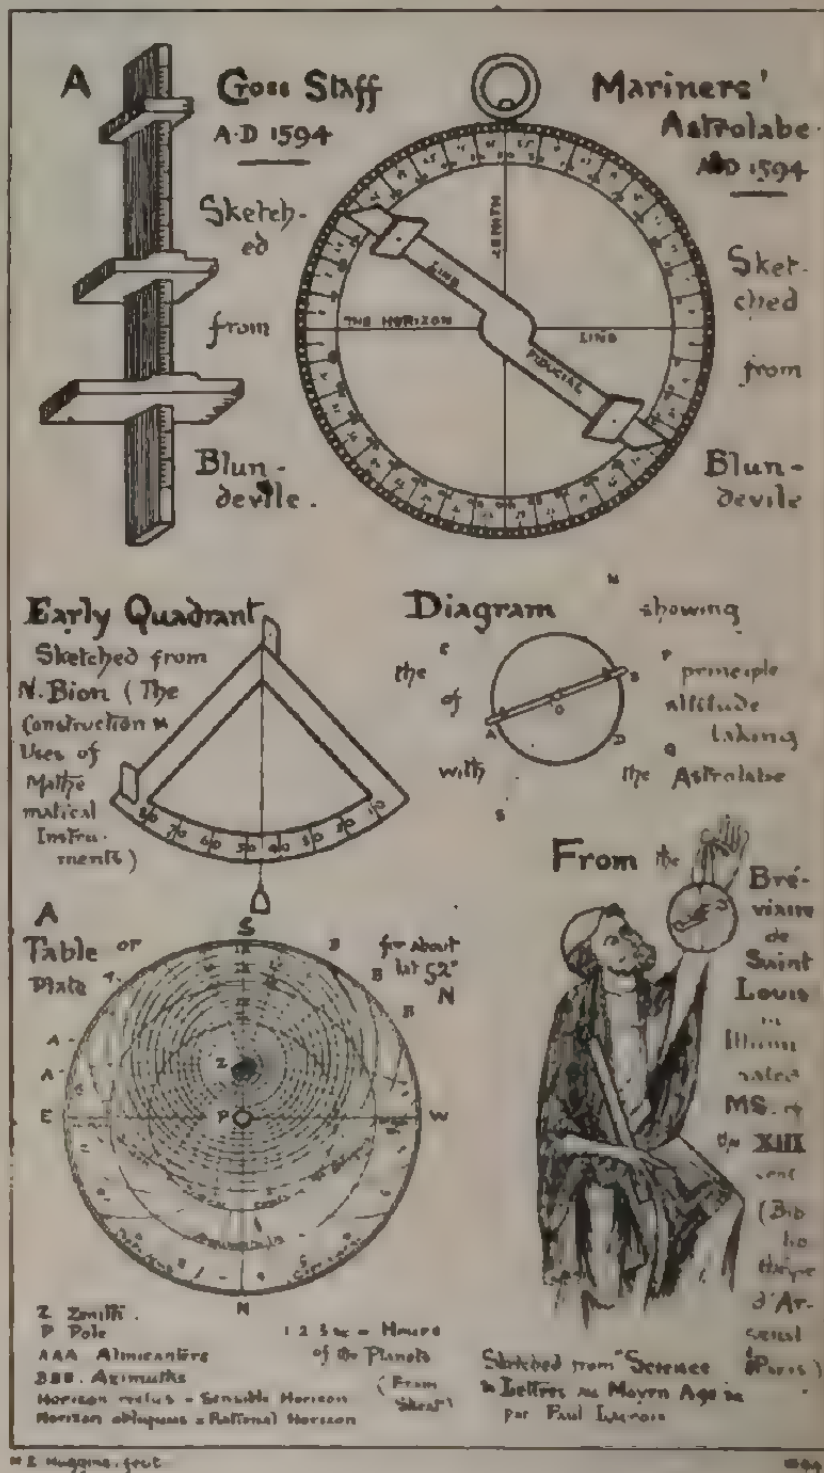 A Cross Staff
A·D 1594
Sketch-
ed
from
Blun-
devile.
Mariners'
Astrolabe
A·D 1594
Sket-
ched
from
Blun-
devile
ZENITH
LINE
THE HORIZON
LINE
FIDUCIAL
Early Quadrant
Sketched from
N. Bion (The
Construction &
Uses of
Mathe
matical
Instru-
ments)
80 70 60 50 40 30 20 10
Diagram showing
the principle
of altitude
taking
with the Astrolabe
A
B
D
A
Table or
Plate
for about
lat 52°
N
S
B
B
B
A
A
A
E
Z
P
W
N
Z Zenith.
P Pole
AAA Almicanters
BBB. Azimuths
Horizon rectus = Sensible Horizon
Horizon obliquus = Rational Horizon
1 2 3 &c = Hours
of the Planets
(From
Skeat)
From the
Bré-
viaire
de
Saint
Louis
Illumi
nated
MS. of
the XIII
cent
(Bib
lio
thèque
d'Ar-
senal
Paris)
Sketched from "Science
& Lettres au Moyen Age"
par Paul Lacroix
M L Huggins. fecit